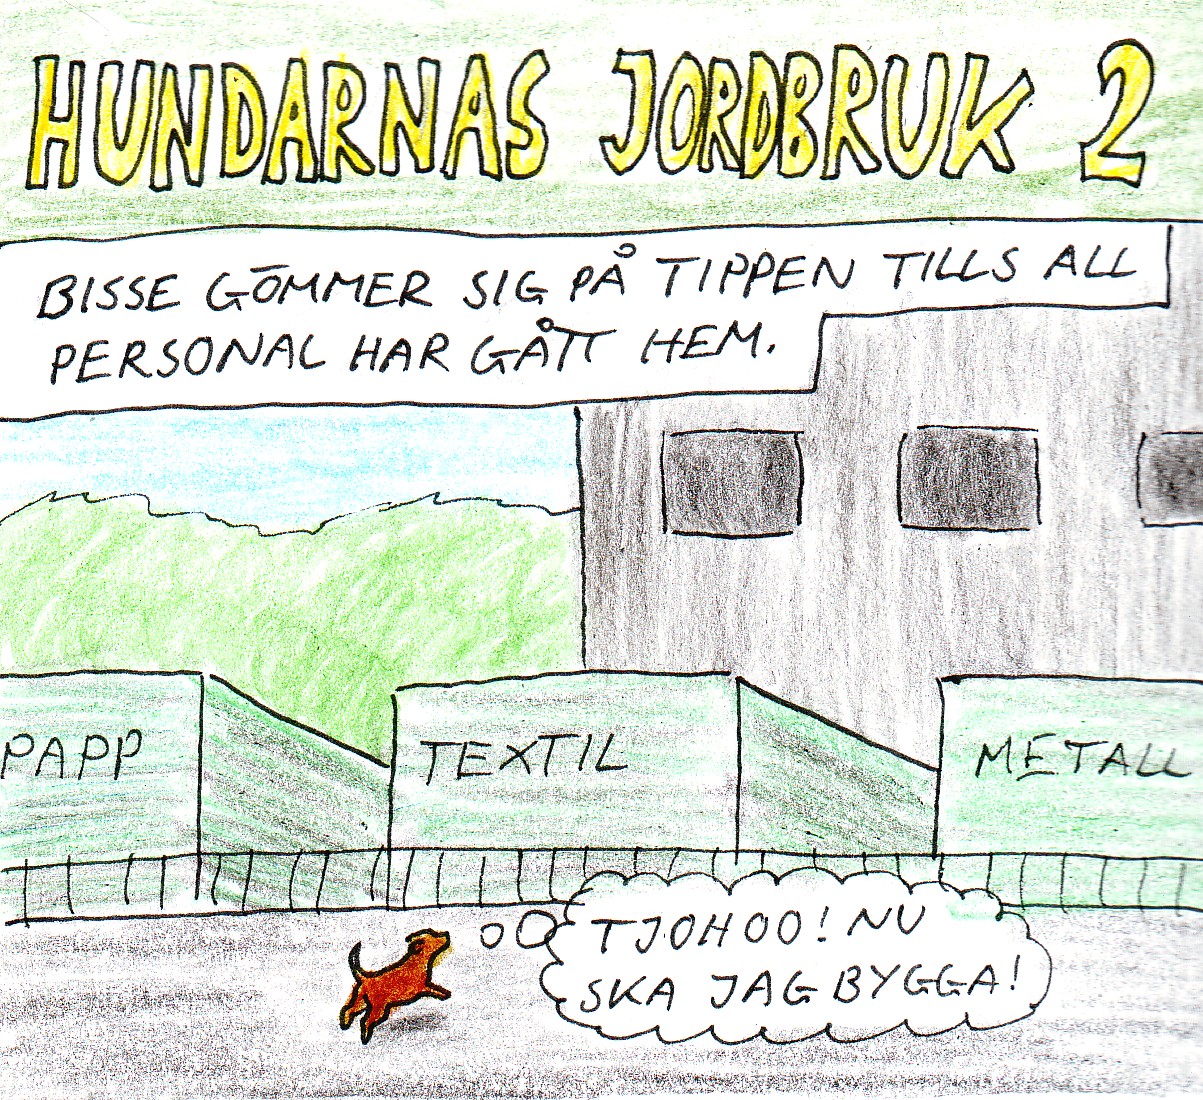 HUNDARNAS JORDBRUK 2
BISSE GÖMMER SIG PÅ TIPPEN TILLS ALL
PERSONAL HAR GÅTT HEM.
PAPP
TEXTIL
METALL
TJOHOO! NU
SKA JAG BYGGA!